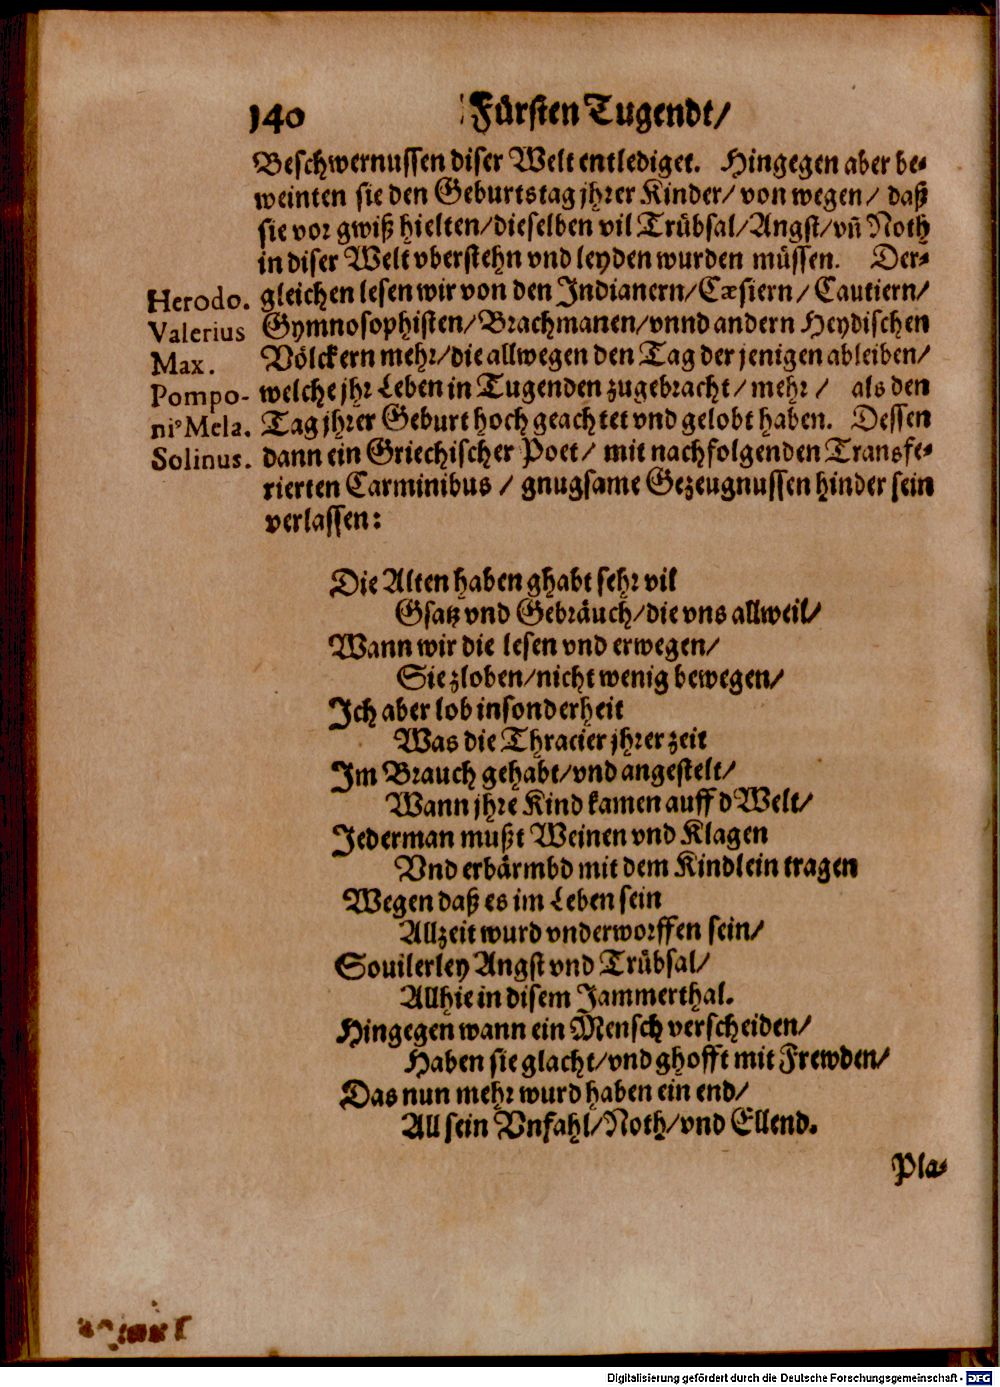 140 Fürsten Tugendt/
Beschwernussen diser Welt entlediget. Hingegen aber be-
weinten sie den Geburtstag jhrer Kinder/ von wegen/ daß
sie vor gwiß hielten/dieselben vil Trübsal/Angst/vñ Noth
in diser Welt vberstehn vnd leyden wurden müssen. Der-
gleichen lesen wir von den Indianern/Cæsiern/ Cautiern/
Gymnosophisten/Brachmanen/vnnd andern Heydischen
Völckern mehr/die allwegen den Tag der jenigen ableiben/
welche jhr Leben in Tugenden zugebracht/ mehr/ als den
Tag jhrer Geburt hoch geachtet vnd gelobt haben. Dessen
dann ein Griechischer Poet/ mit nachfolgenden Transfe-
rierten Carminibus / gnugsame Gezeugnussen hinder sein
verlassen:
Herodo.
Valerius
Max.
Pompo-
niꝰ Mela.
Solinus.
Die Alten haben ghabt sehr vil
Gsatz vnd Gebräuch/die vns allweil/
Wann wir die lesen vnd erwegen/
Sie zloben/nicht wenig bewegen/
Ich aber lob insonderheit
Was die Thracier jhrer zeit
Im Brauch gehabt/vnd angestelt/
Wann jhre Kind kamen auff d Welt/
Jederman mußt Weinen vnd Klagen
Vnd erbärmbd mit dem Kindlein tragen
Wegen daß es im Leben sein
Allzeit wurd vnderworffen sein/
Souilerley Angst vnd Trübsal/
Allhie in disem Jammerthal.
Hingegen wann ein Mensch verscheiden/
Haben sie glacht/vnd ghofft mit Frewden/
Das nun mehr wurd haben ein end/
All sein Vnfahl/Noth/vnd Ellend.
Pla-
Digitalisierung gefördert durch die Deutsche Forschungsgemeinschaft - DFG